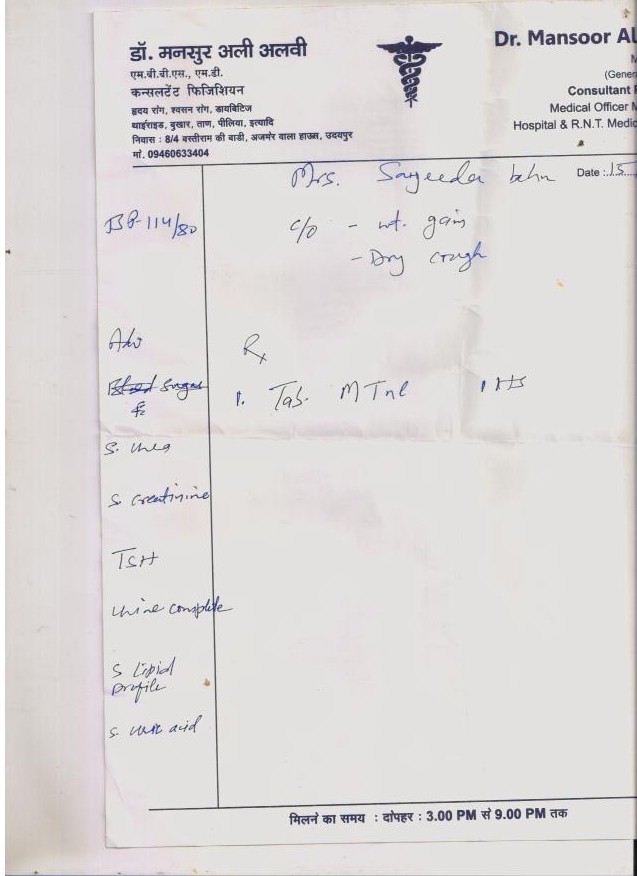 डॉ. मनसुर अली अलवी
एम.बी.बी.एस., एम.डी.
कन्सलटेंट फिजिशियन
हृदय रोग, श्वसन रोग, डायबिटिज
थाईराइड, बुखार, ताण, पीलिया, इत्यादि
निवास : 8/4 बस्तीराम की बाडी, अजमेर वाला हाऊस, उदयपुर
मां. 09460633404
Dr. Mansoor Al
M
(Gener
Consultant
Medical Officer M
Hospital & R.N.T. Medic
Mrs. Sayeeda
Date : 15
BP-114/80
c/o - wt. gain
- Dry cough
Adv
Rx
Blood Sugar
1. Tab. 1 HS
S. Urea
S. Creatinine
TSH
Urine complete
S Lipid
profile
S. Uric acid
मिलने का समय : दोपहर : 3.00 PM से 9.00 PM तक